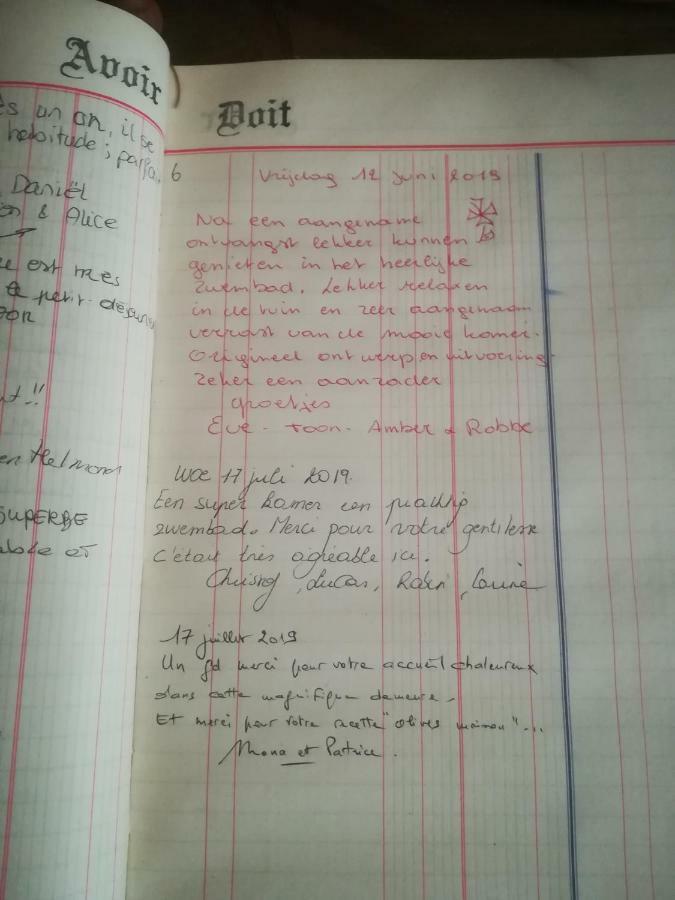 Avoir
un an, il se
habitude ; parfa
Daniël
& Alice
est très
petit-déjeuner
en Helmond
SUPERBE
Doit
6
Vrijdag 12 juni 2019
Na een aangename
ontvangst lekker kunnen
genieten in het heerlijke
zwembad. Lekker relaxen
in de tuin en zeer aangenaam
verrast van de mooie kamer.
Origineel ontwerp en uitvoering
zeker een aanrader
groetjes
Eve - Toon - Amber & Robbe
woe 17 juli 2019.
Een super kamer een prachtig
zwembad. Merci pour votre gentillesse
c'était très agréable ici.
Lucas, Robin, Laurine
17 juillet 2019
Un gd merci pour votre accueil chaleureux
dans cette magnifique demeure.
Et merci pour votre recette "olives maison"...
Mona et Patrice.